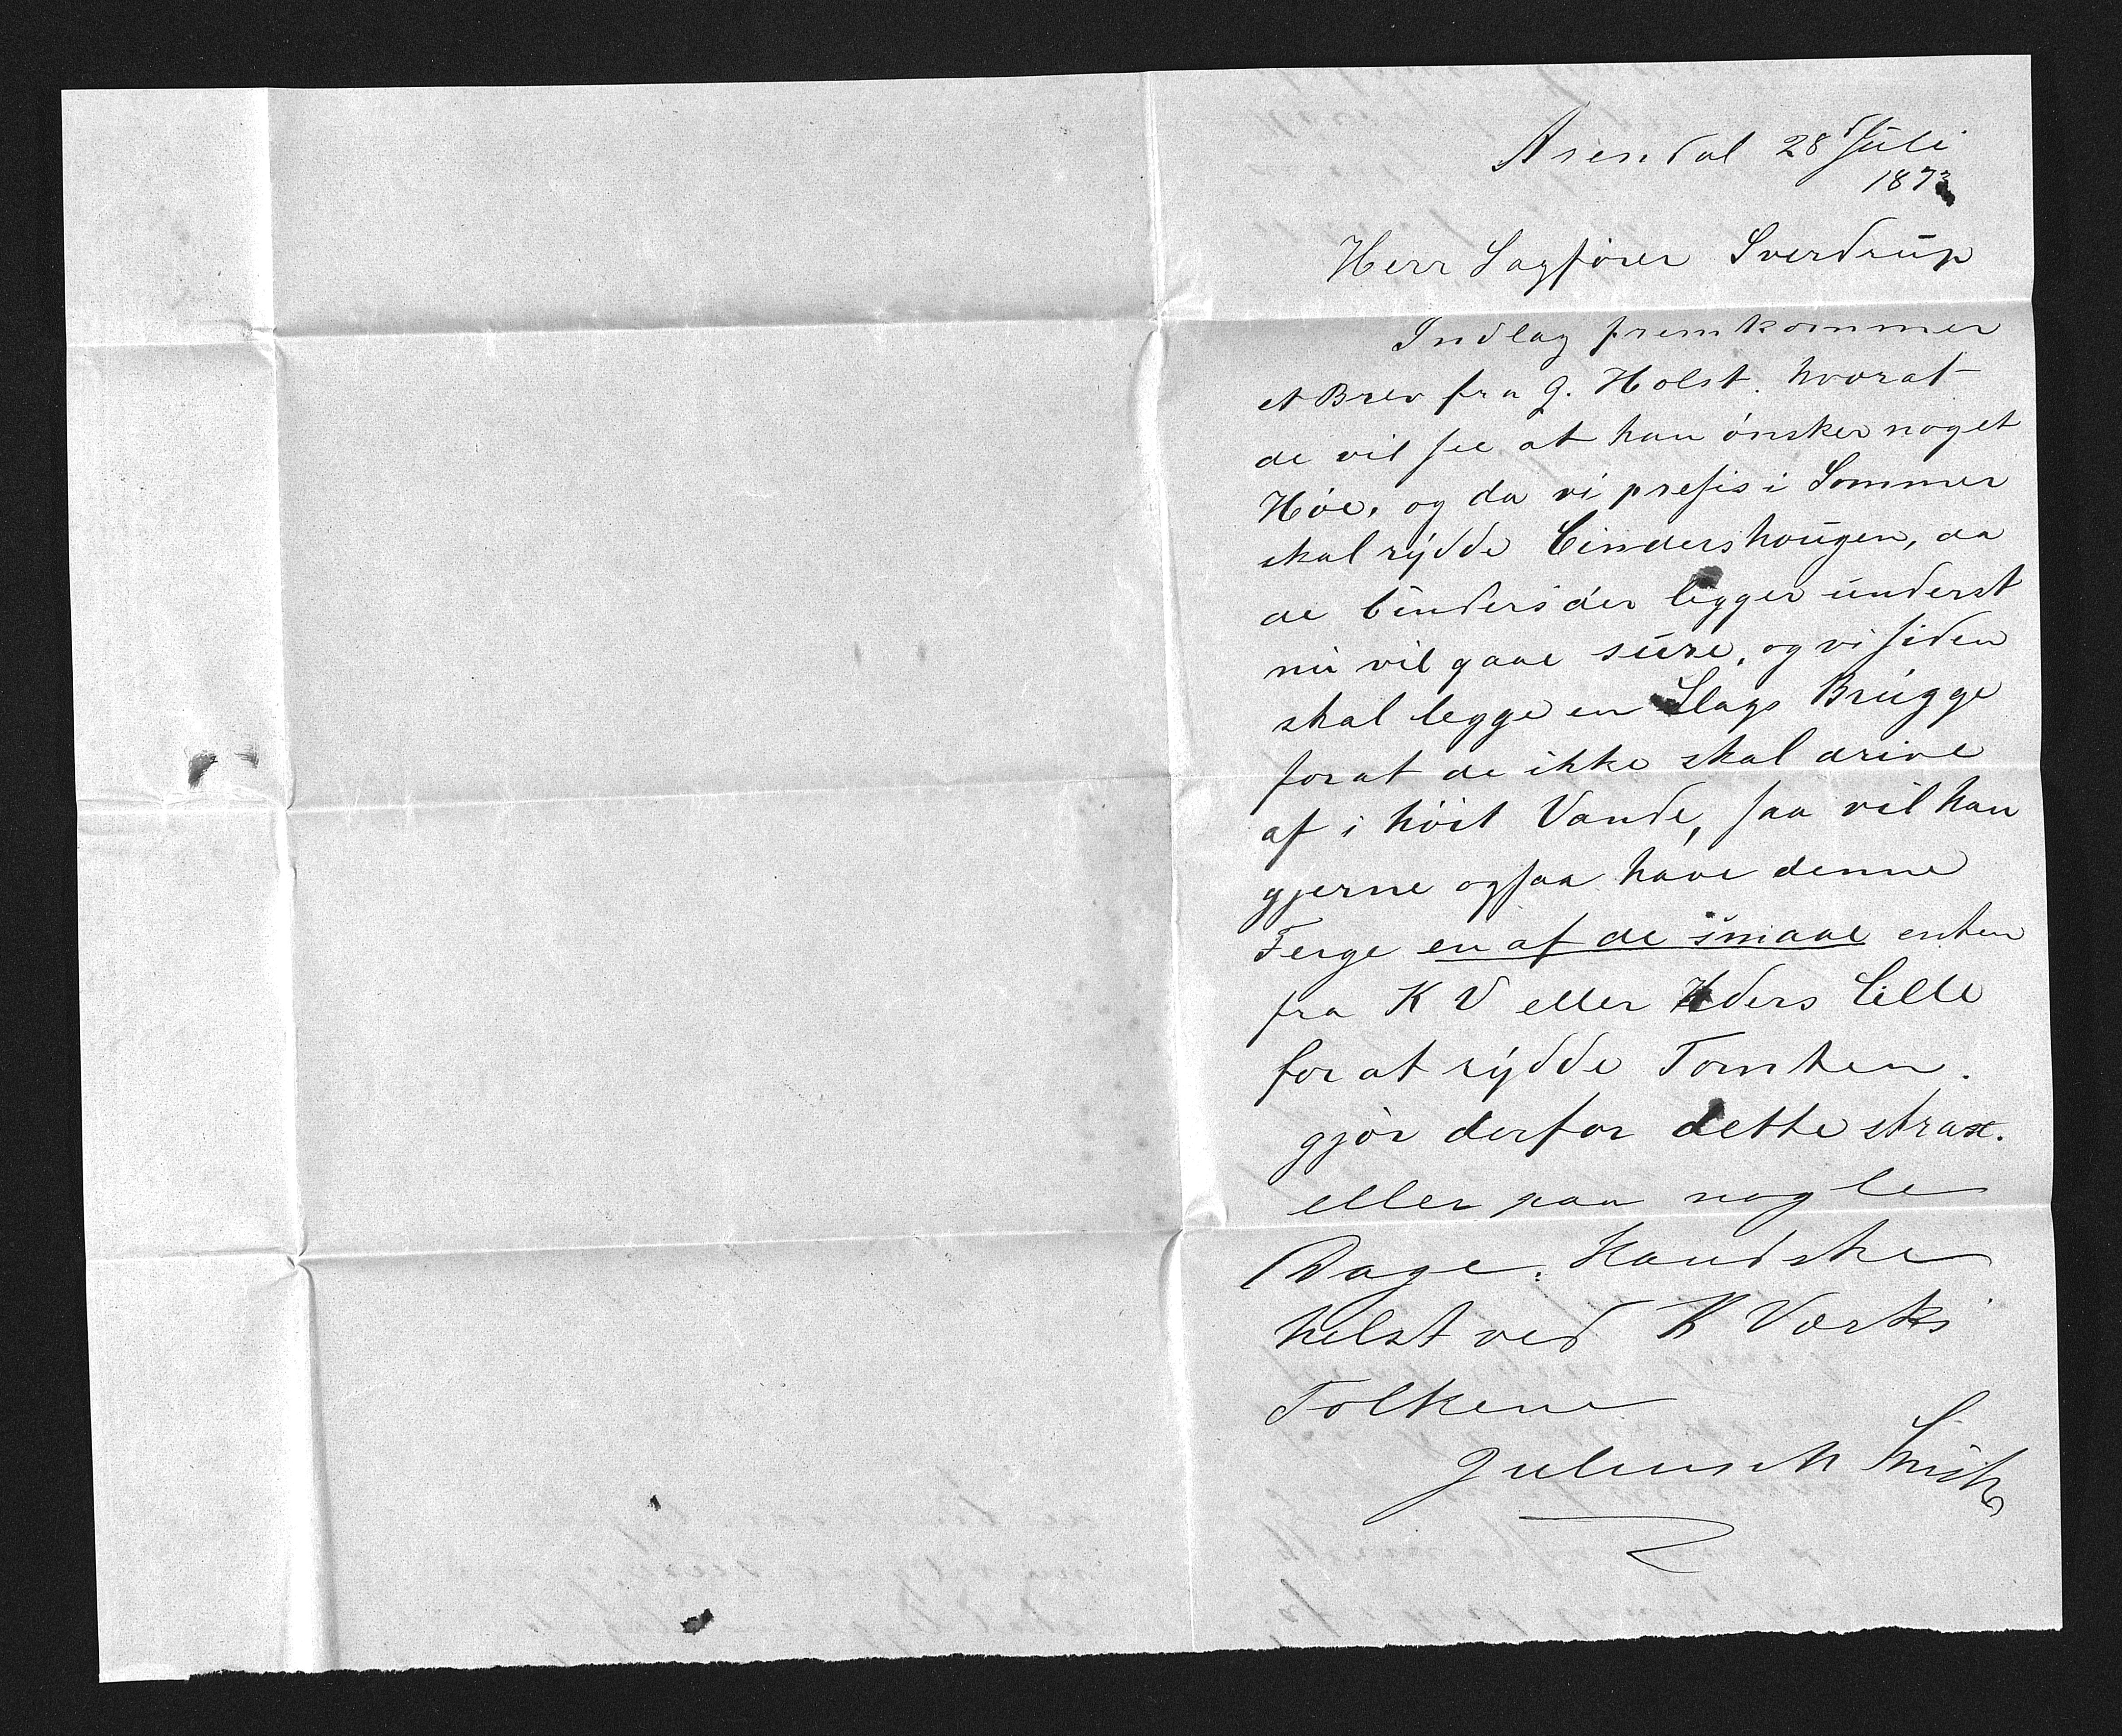 Arendal 28 Juli
1873
Herr Sagfører Sverdrup
Indlag fremkommer
et Brev fra G. Holst. hvorat
de vil see at han ønsker noget
Høe, og da vi presis i Sommer
skal rydde Cindershougen, da
de Cinders der ligger underst
nu vil gaae sure, og vi siden
skal legge en Slags Brugge
forat de ikke skal drive
af i høit Vande, saa vil han
gjerne ogsaa have denne
Ferge en af de smaae enten
fra K V eller Lille
for at rydde Tomten.
gjør derfor dette strax.
eller paa nogle
Dage. Kandske
helst ved K Værks
Folkene
Julius M Smith